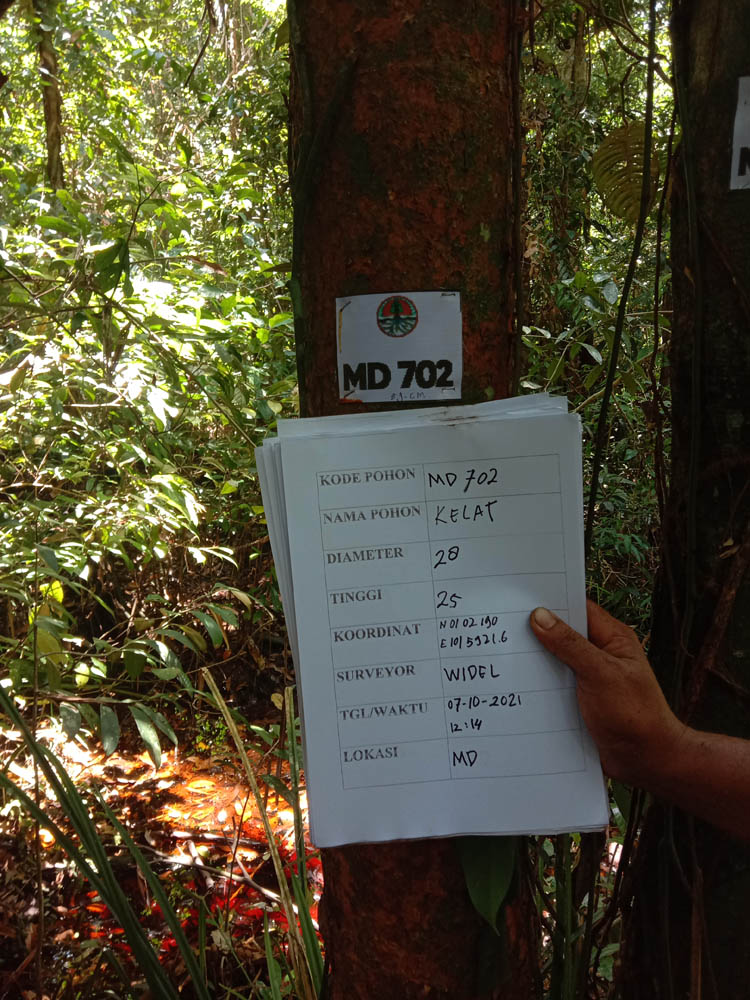 MD 702
KODE POHON MD 702
NAMA POHON KELAT
DIAMETER 28
TINGGI 25
KOORDINAT N 01 02 190
E 101 5921.6
SURVEYOR WIDEL
TGL/WAKTU 07-10-2021
12:14
LOKASI MD